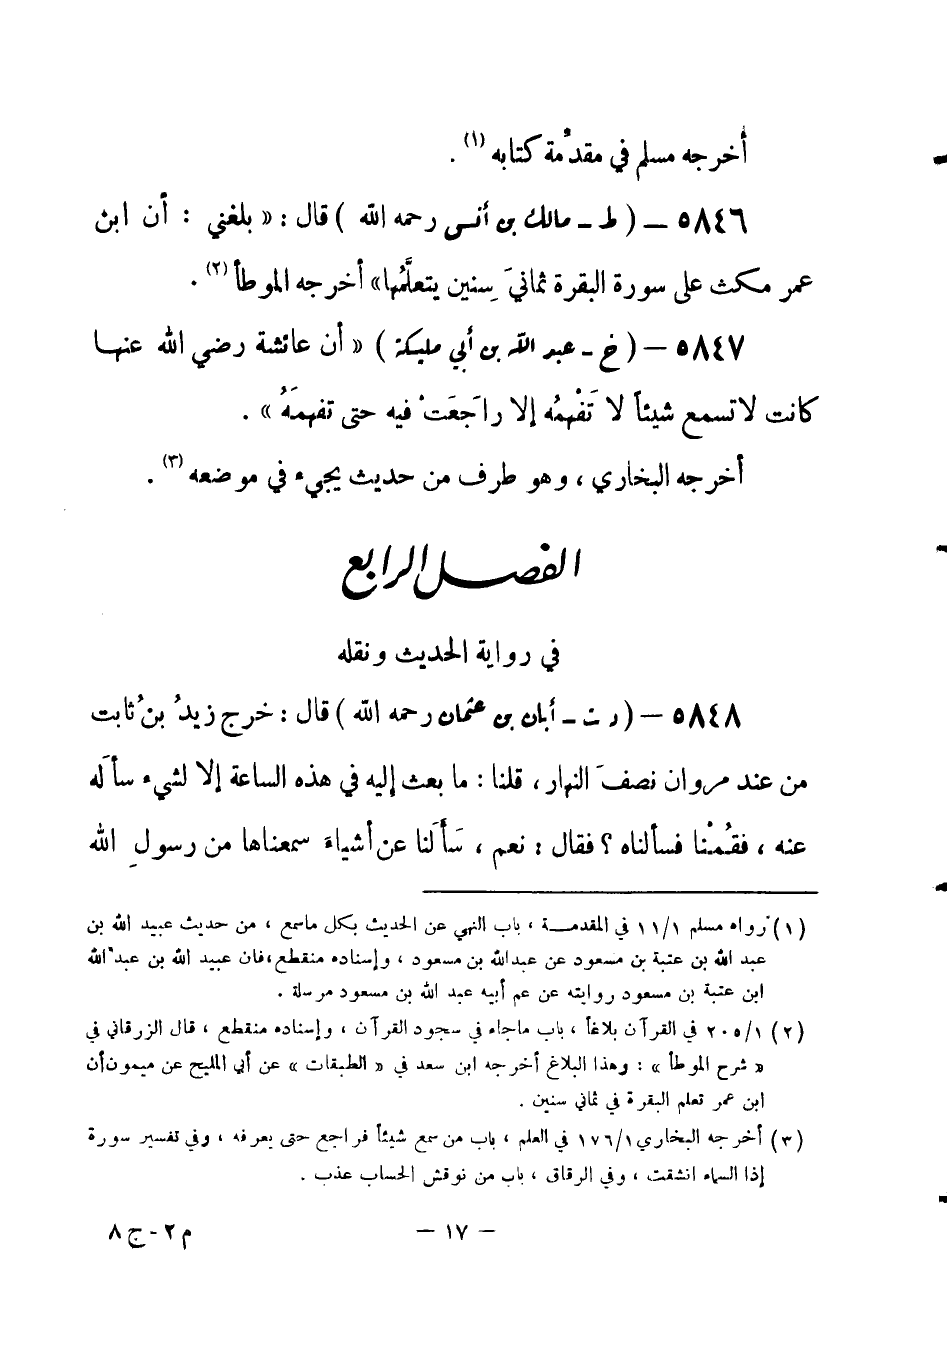 أخرجه مسلم في مقدِّمة كتابه (١) .
٥٨٤٦ — ( ط ـ مالك بن أنس رحمه الله ) قال : « بلغني : أن ابن
عمر مكث على سورة البقرة ثمانيَ سِنين يتعلَّمُها» أخرجه الموطأ (٢) .
٥٨٤٧ — ( خ ـ عبد الله بن أبي مليكة ) « أن عائشة رضي الله عنها
كانت لاتسمع شيئاً لا تَفْهمُه إلا راَجَعَتْ فيه حتى تفهمَهُ » .
أخرجه البخاري ، وهو طرف من حديث يجيء في موضعه (٣) .
الفصل الرابع
في رواية الحديث ونقله
٥٨٤٨ — ( د ت ـ أبان بن عثمان رحمه الله ) قال : خرج زيدُ بنُ ثابت
من عند مروان نصفَ النهار ، قلنا : ما بعث إليه في هذه الساعة إلا لشيء سأَله
عنه ، فقُمْنا فسألناه ؟ فقال : نعم ، سَأَلنا عن أشياءَ سمعناها من رسولِ الله
(١) رواه مسلم ١١/١ في المقدمة ، باب النهي عن الحديث بكل ماسمع ، من حديث عبيد الله بن
عبد الله بن عتبة بن مسعود عن عبدالله بن مسعود ، وإسناده منقطع ،فان عبيد الله بن عبد الله
ابن عتبة بن مسعود روايته عن عم أبيه عبد الله بن مسعود مرسلة .
(٢) ٢٠٥/١ في القرآن بلاغاً ، باب ماجاء في سجود القرآن ، وإسناده منقطع ، قال الزرقاني في
« شرح الموطأ » : وهذا البلاغ أخرجه ابن سعد في « الطبقات » عن أبي المليح عن ميمون أن
ابن عمر تعلم البقرة في ثماني سنين .
(٣) أخرجه البخاري ١٧٦/١ في العلم ، باب من سمع شيئاً فراجع حتى يعرفه ، وفي تفسير سورة
إذا السماء انشقت ، وفي الرقاق ، باب من نوقش الحساب عذب .
— ١٧ —
م ٢ - ج ٨